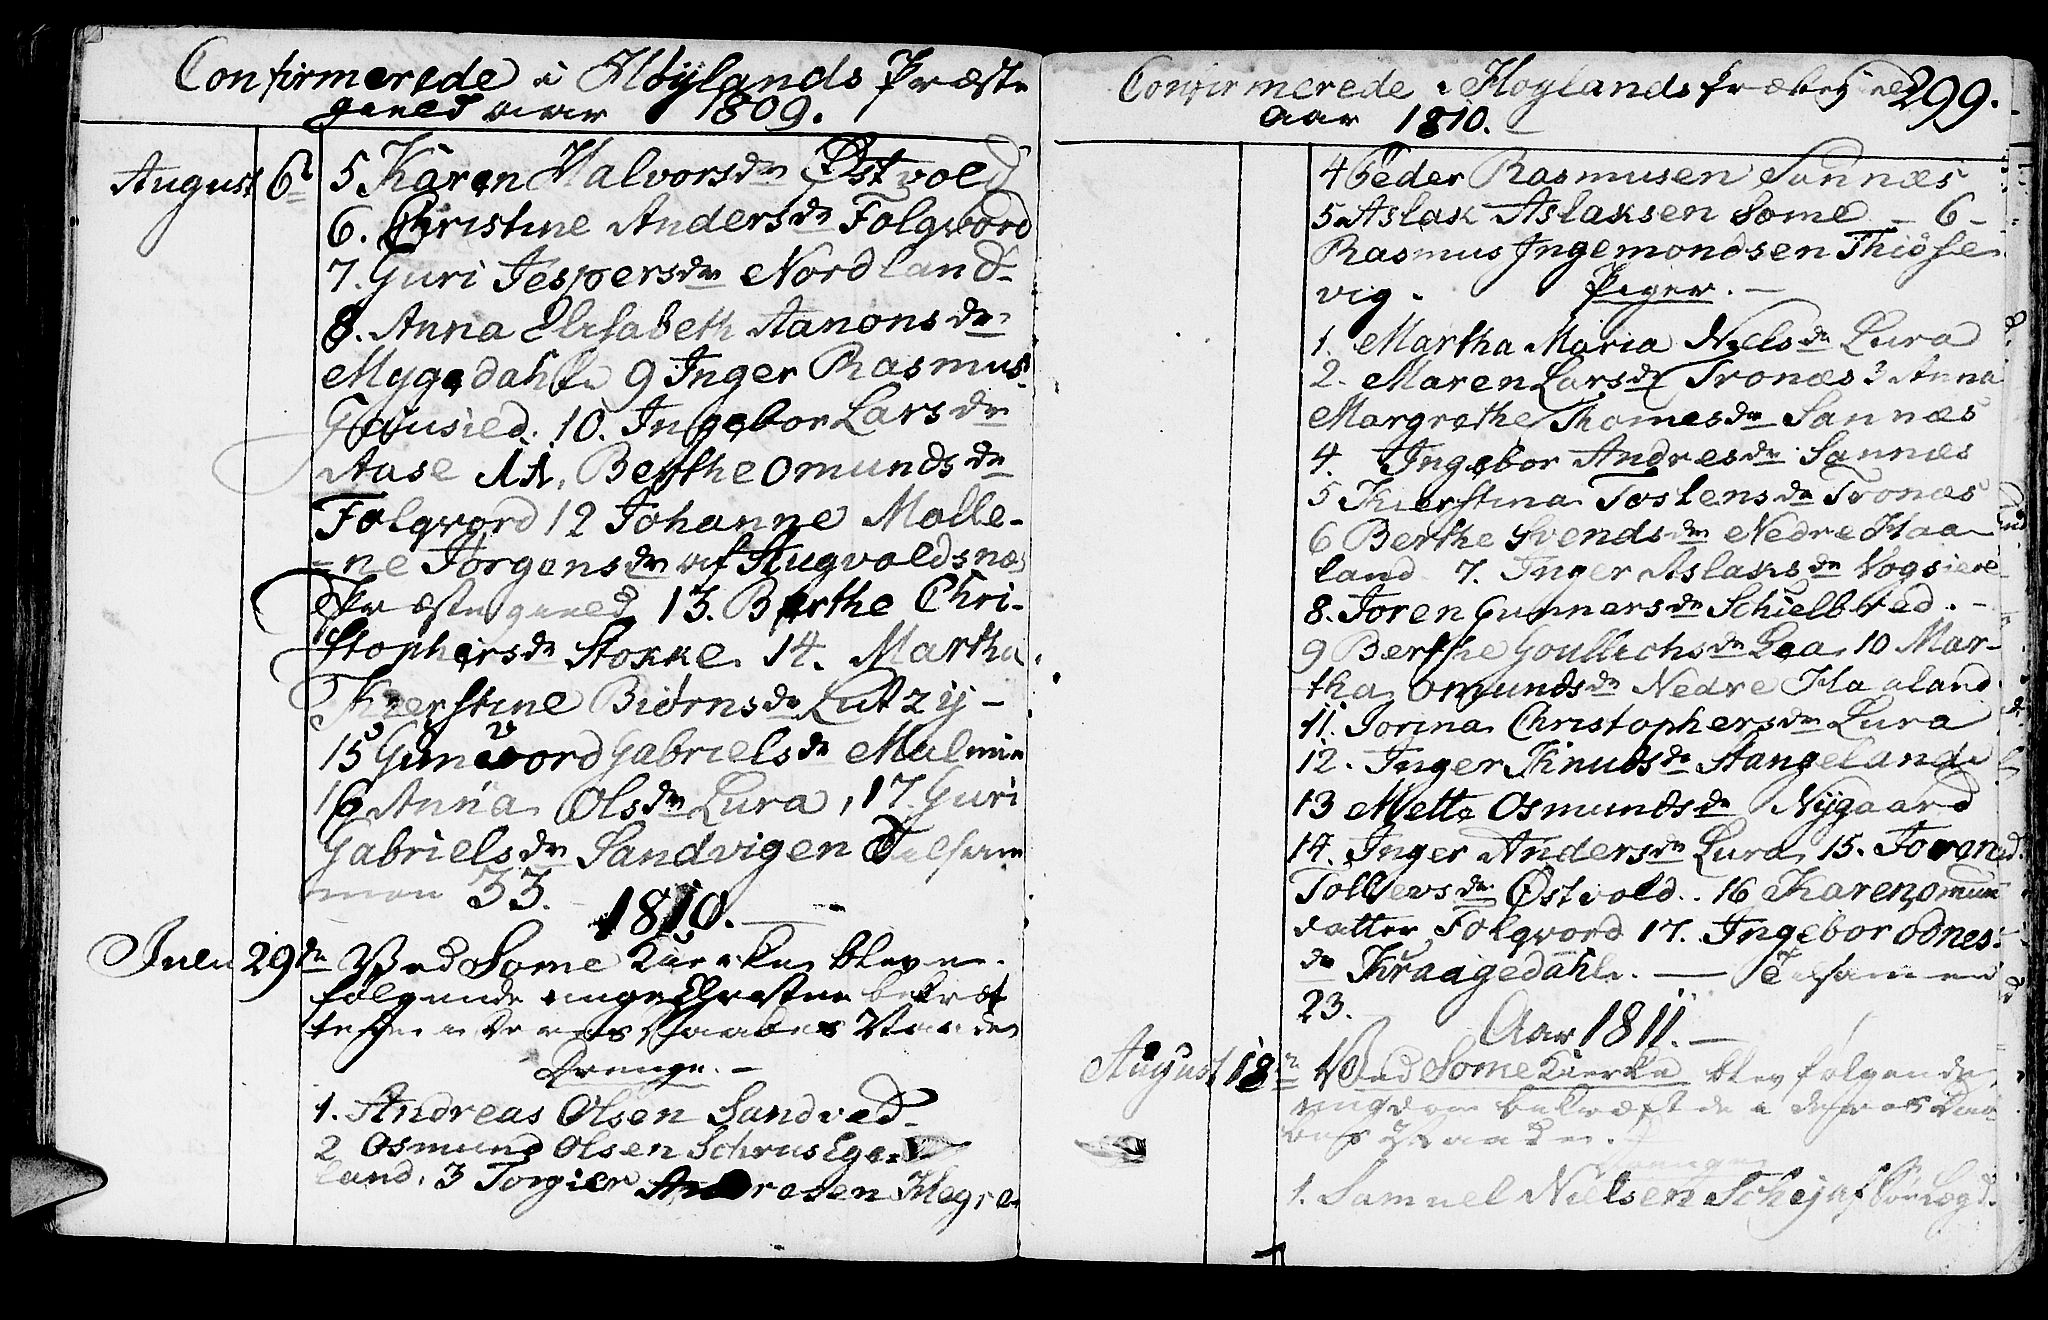 Confirmerede i Höylands Præste
gield aar 1809.
August 6t 5 Karen Halvorsdr Østvold
6. Christine Andersdr Folqvord
7. Guri Jespersdr Nordland
8. Anna Elisabeth Aanonsdr
Mygedahl 9 Inger Rasmus
Gausied. 10. Ingebor Larsdr
Aase 11. Berthe Omundsdr
Folqvord 12 Johanne Malle-
-ne Jørgensdr af Augvoldsnæs
Præstegield 13. Berthe Chri-
stophersdr Stokke. 14. Martha
Kierstine Biørnsdr Lutzij -
15 Gunvord Gabrielsdr Malmin
16 Anna Olsdr Lura, 17. Guri
Gabrielsdr Sandvigen Tilsam
men 33.
1810.
Julii 29de Ved Some Kierke bleve
følgende unge Christne bekræf
tede i Deres Daabes
Drenge. -
1. Andreas Olsen Sandved
2 Osmund Olsen Schrus Ege
land. 3 Torgier Andresen Hegre
Confirmerede i Hoylands Præstegield 299.
Aar 1810.
4 Peder Rasmusen Sannæs
5 Aslak Aslaksen Some - 6 -
Rasmus Ingemondsen Thiosse
vig. Piger. -
1. Martha Maria Nielsdr Lura
2. Maren Larsdr Tronæs 3 Anna
Margrethe Thomesdr Sannæs
4. Ingebor Andresdr Sannæs
5 Kierstina Tostensdr Tronæs
6 Berthe Svendsdr Nedre Haa
land 7. Inger Aslaksdr Vogsiere
8. Joren Gunnersdr Schielbred. -
9 Berthe Goullichsdr Lea 10 Mar-
tha Omundsdr Nedre Haaland
11. Jorina Christophersdr Lura
12. Inger Knudsdr Stangeland
13 Mette Osmundsdr Nygaard
14. Inger Andersdr Lura 15. Joren
Tollevsdr Østvold.. 16 Karen Omun
datter Folqvord 17. Ingebor Odnes
dr Kraagedahl. - Tilsamen
23.
Aar 1811. -
August 18de Ved Some Kierke blev følgende
ungdom bekræftede i deres Daa
bes Pagt.
Drenge
1. Samuel Nielsen Schejaf